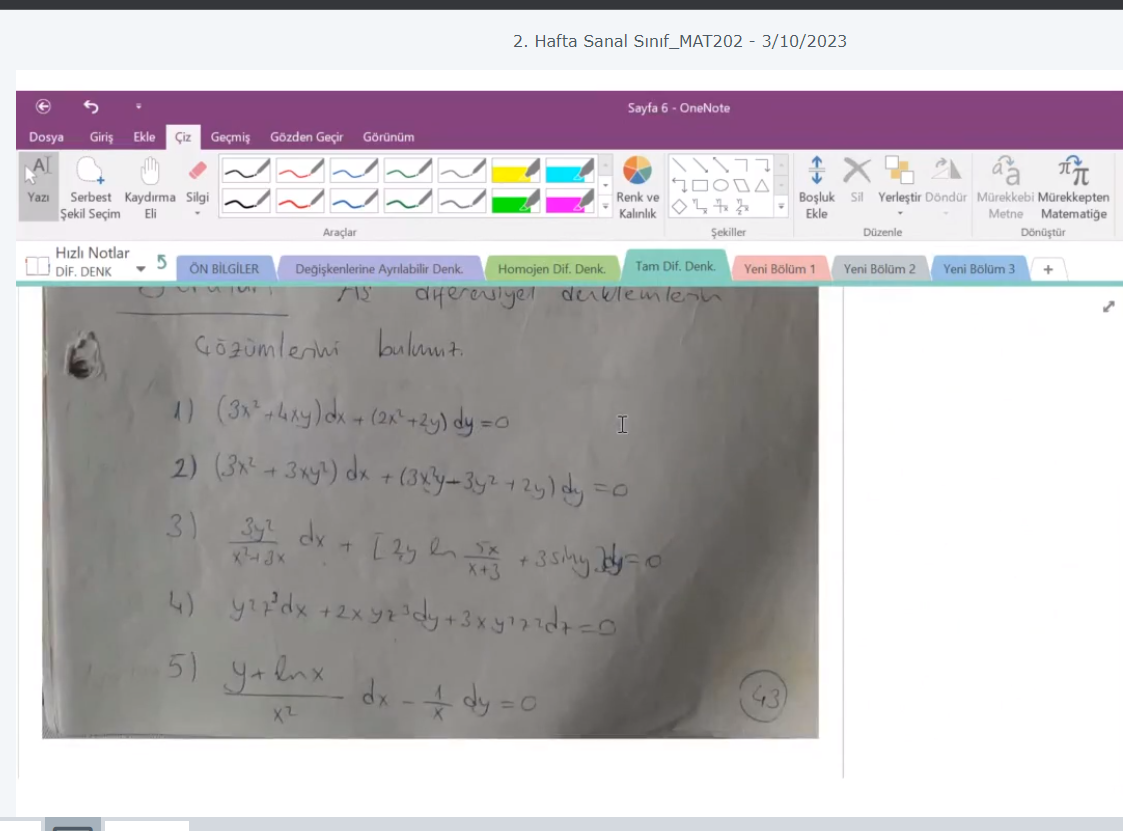 2. Hafta Sanal Sınıf_MAT202 - 3/10/2023
Sayfa 6 - OneNote
Dosya Giriş Ekle Çiz Geçmiş Gözden Geçir Görünüm
Yazı Serbest Şekil Seçim Kaydırma Eli Silgi Renk ve Kalınlık Boşluk Ekle Sil Yerleştir Döndür Mürekkebi Metne Mürekkepten Matematiğe
Araçlar Şekiller Düzenle Dönüştür
Hızlı Notlar
DİF. DENK
ÖN BİLGİLER Değişkenlerine Ayrılabilir Denk. Homojen Dif. Denk. Tam Dif. Denk. Yeni Bölüm 1 Yeni Bölüm 2 Yeni Bölüm 3 +
diferensiyel denklemlerin
Çözümlerini bulunuz.
1) (3x² + 4xy)dx + (2x² + 2y) dy = 0
2) (3x² + 3xy²) dx + (3x²y - 3y² + 2y) dy = 0
3) 3y²/(x²+3x) dx + [2y ln 5x/(x+3) + 3 siny] dy = 0
4) y²z³dx + 2xyz³dy + 3xy²z²dz = 0
5) (y + lnx)/x² dx - 1/x dy = 0
43